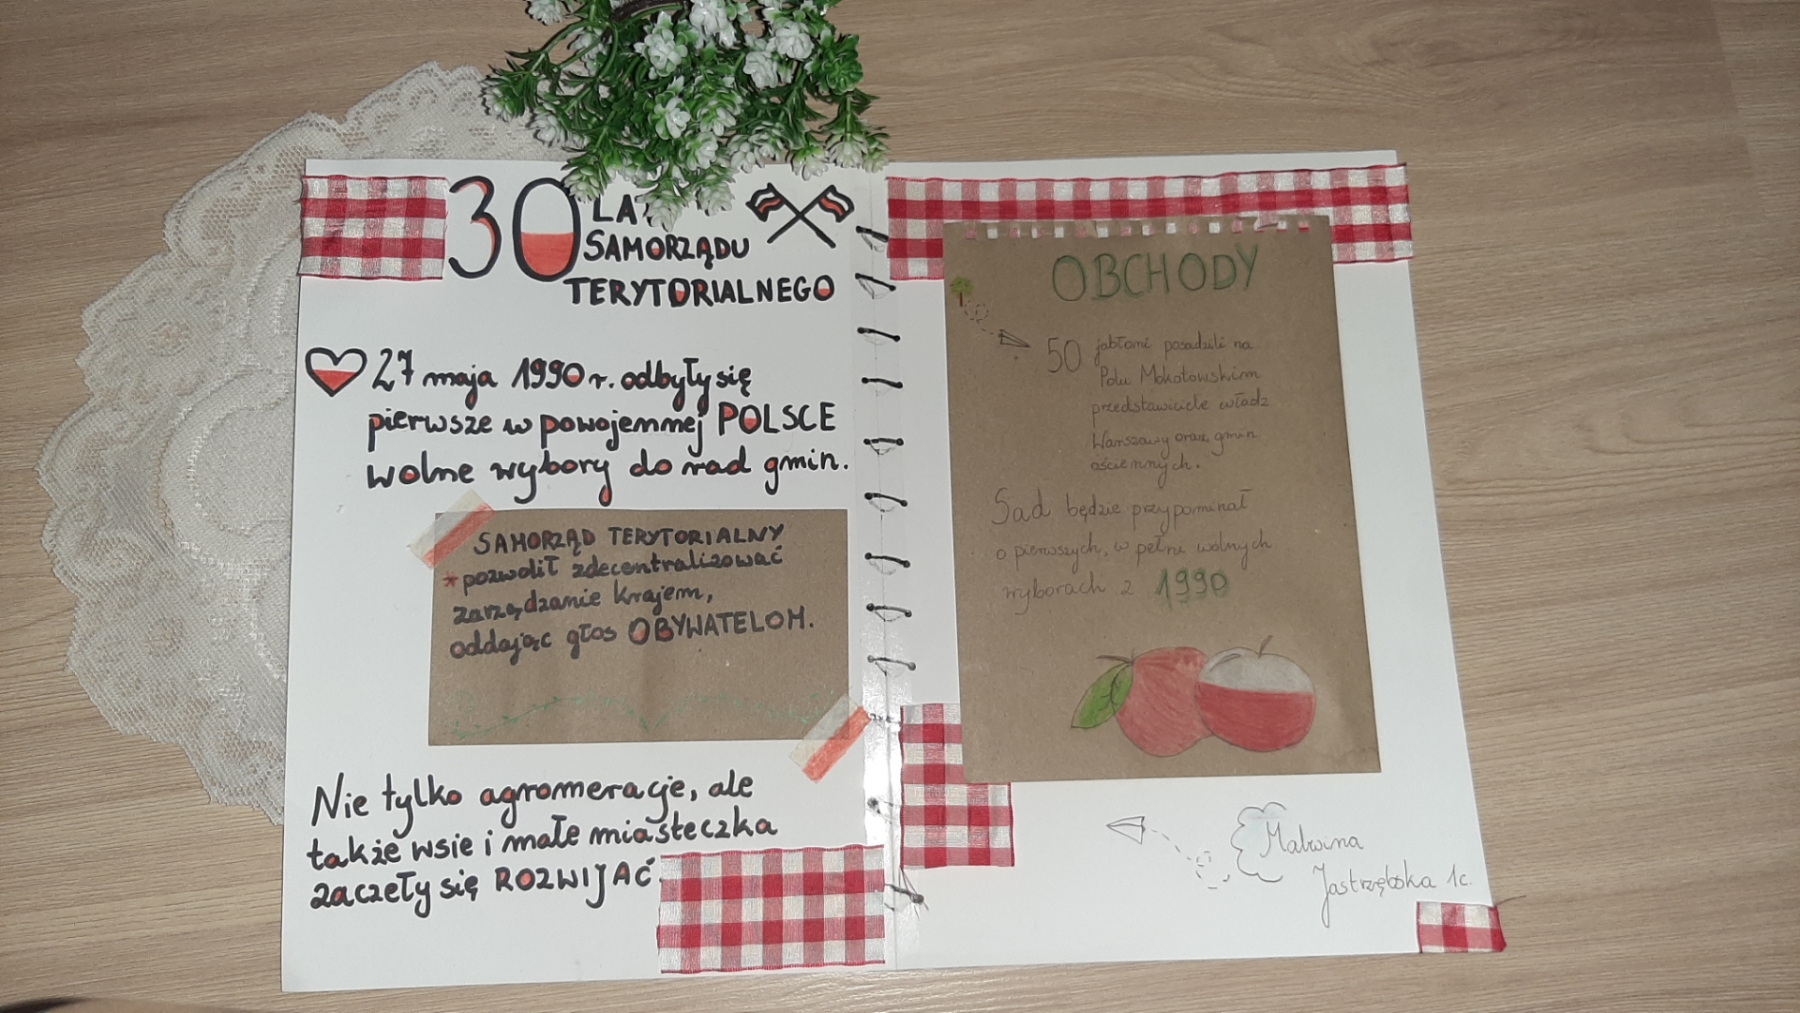 30 LAT
SAMORZĄDU
TERYTORIALNEGO
27 maja 1990 r. odbyły się
pierwsze w powojennej POLSCE
wolne wybory do rad gmin.
SAMORZĄD TERYTORIALNY
*pozwolił zdecentralizować
zarządzanie krajem,
oddając głos OBYWATELOM.
Nie tylko agromeracje, ale
także wsie i małe miasteczka
zaczeły się ROZWIJAĆ.
OBCHODY
50 jabłoni posadzili na
Polu Mokotowskim
przedstawiciele władz
Warszawy oraz gmin
ościennych.
Sad będzie przypominał
o pierwszych, w pełni wolnych
wyborach z 1990
Malwina
Jastrzębska 1c.